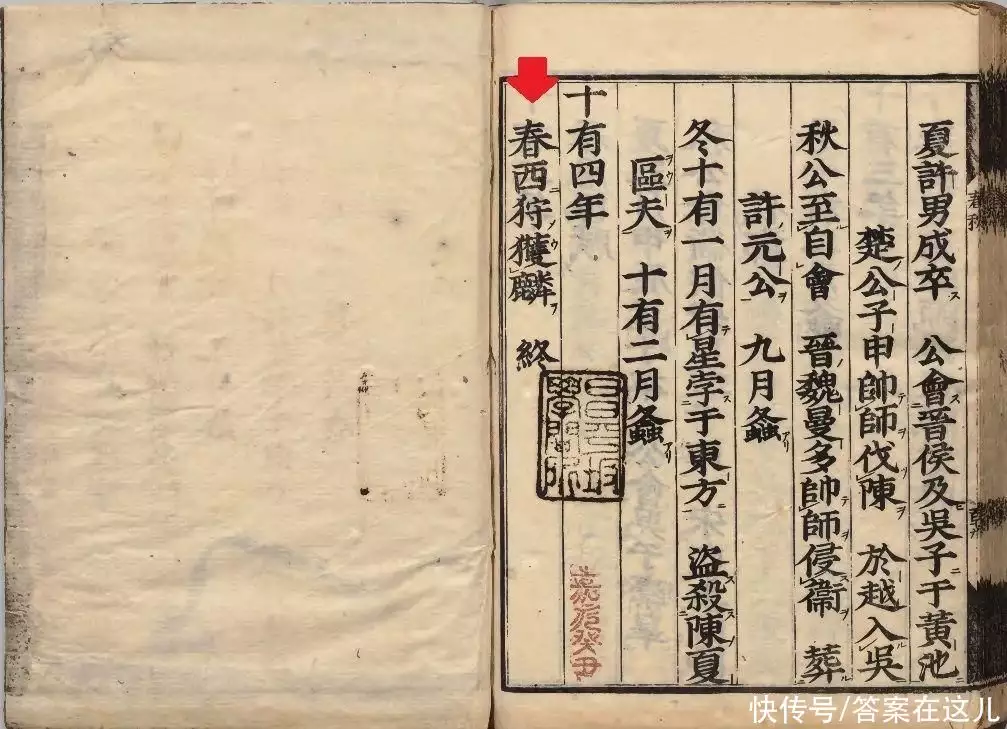 夏許男成卒 公會晉侯及吳子于黃池
楚公子申帥師伐陳 於越入吳
秋公至自會 晉魏曼多帥師侵衞 葬
許元公 九月螽
冬十有一月有星孛于東方 盜殺陳夏
區夫 十有二月螽
十有四年
春西狩獲麟 終
昌平坂學問所
春秋
快传号/答案在这儿